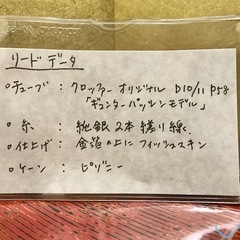 リードデータ
○チューブ：クロッファー オリジナル D10/11 P58
「ギュンターパッシンモデル」
○糸：純銀2本縒り線、
○仕上げ：金箔の上にフィッシュスキン
○ケーン：ピゾニー